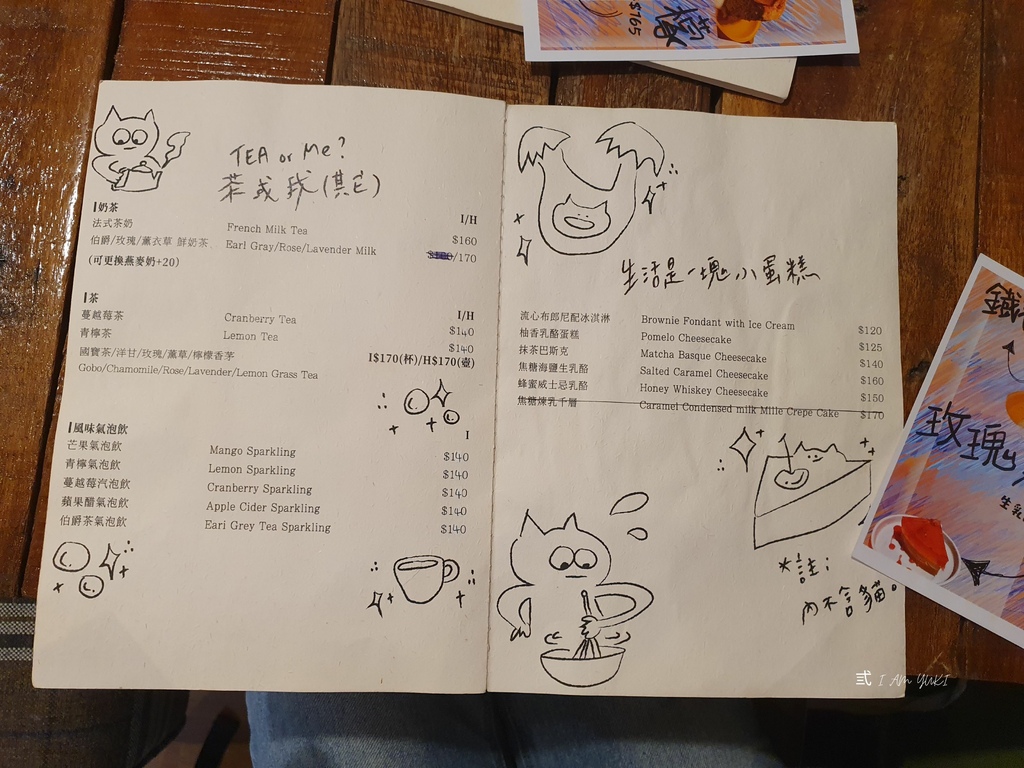 TEA or Me?
茶或我(其它)
奶茶 I/H
法式茶奶 French Milk Tea $160
伯爵/玫瑰/薰衣草 鮮奶茶 Earl Gray/Rose/Lavender Milk /170
(可更換燕麥奶+20)
茶 I/H
蔓越莓茶 Cranberry Tea $140
青檸茶 Lemon Tea $140
國寶茶/洋甘/玫瑰/薰草/檸檬香茅 I$170(杯)/H$170(壺)
Gobo/Chamomile/Rose/Lavender/Lemon Grass Tea
風味氣泡飲 I
芒果氣泡飲 Mango Sparkling $140
青檸氣泡飲 Lemon Sparkling $140
蔓越莓汽泡飲 Cranberry Sparkling $140
蘋果醋氣泡飲 Apple Cider Sparkling $140
伯爵茶氣泡飲 Eari Grey Tea Sparkling $140
生活是一塊小蛋糕
流心布郎尼配冰淇淋 Brownie Fondant with Ice Cream $120
柚香乳酪蛋糕 Pomelo Cheesecake $125
抹茶巴斯克 Matcha Basque Cheesecake $140
焦糖海鹽生乳酪 Salted Caramel Cheesecake $160
蜂蜜威士忌乳酪 Honey Whiskey Cheesecake $150
焦糖煉乳千層 Caramel Condensed milk Mille Crepe Cake $170
*註:
內不含貓。
$165
鐵
玫瑰
生乳
弎 I AM YUKI